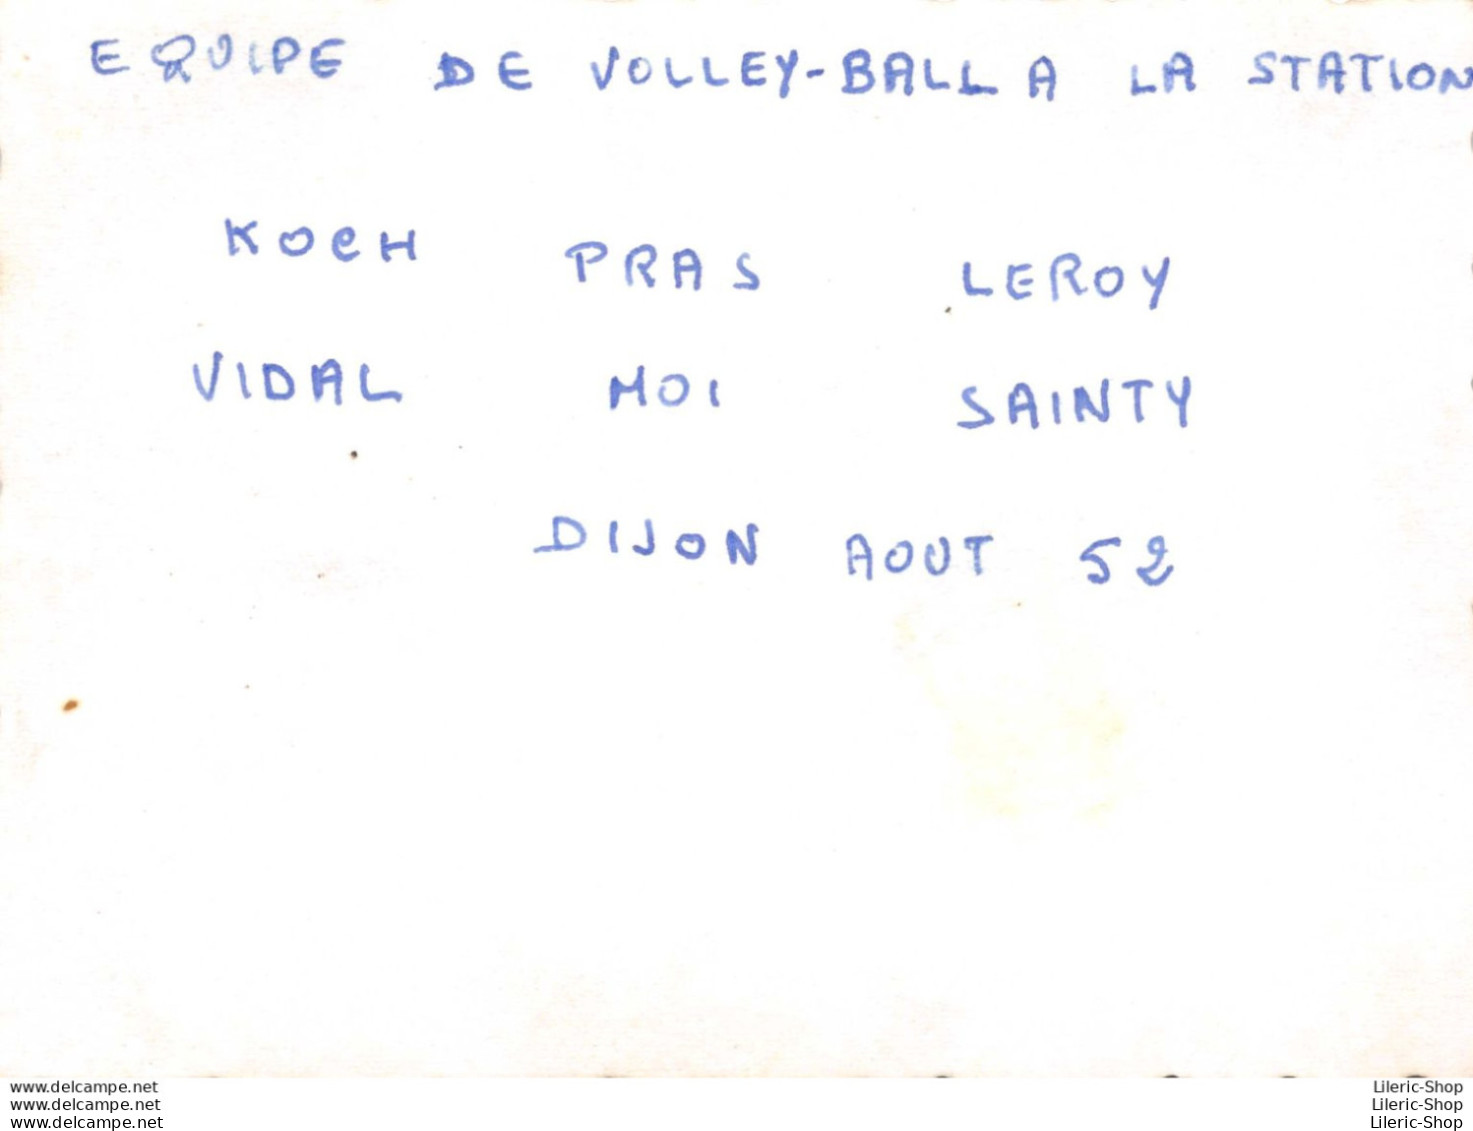 EQUIPE DE VOLLEY-BALL A LA STATION
KOCH PRAS LEROY
VIDAL MOI SAINTY
DIJON AOUT 52
www.delcampe.net Lileric-Shop
www.delcampe.net Lileric-Shop
www.delcampe.net Lileric-Shop